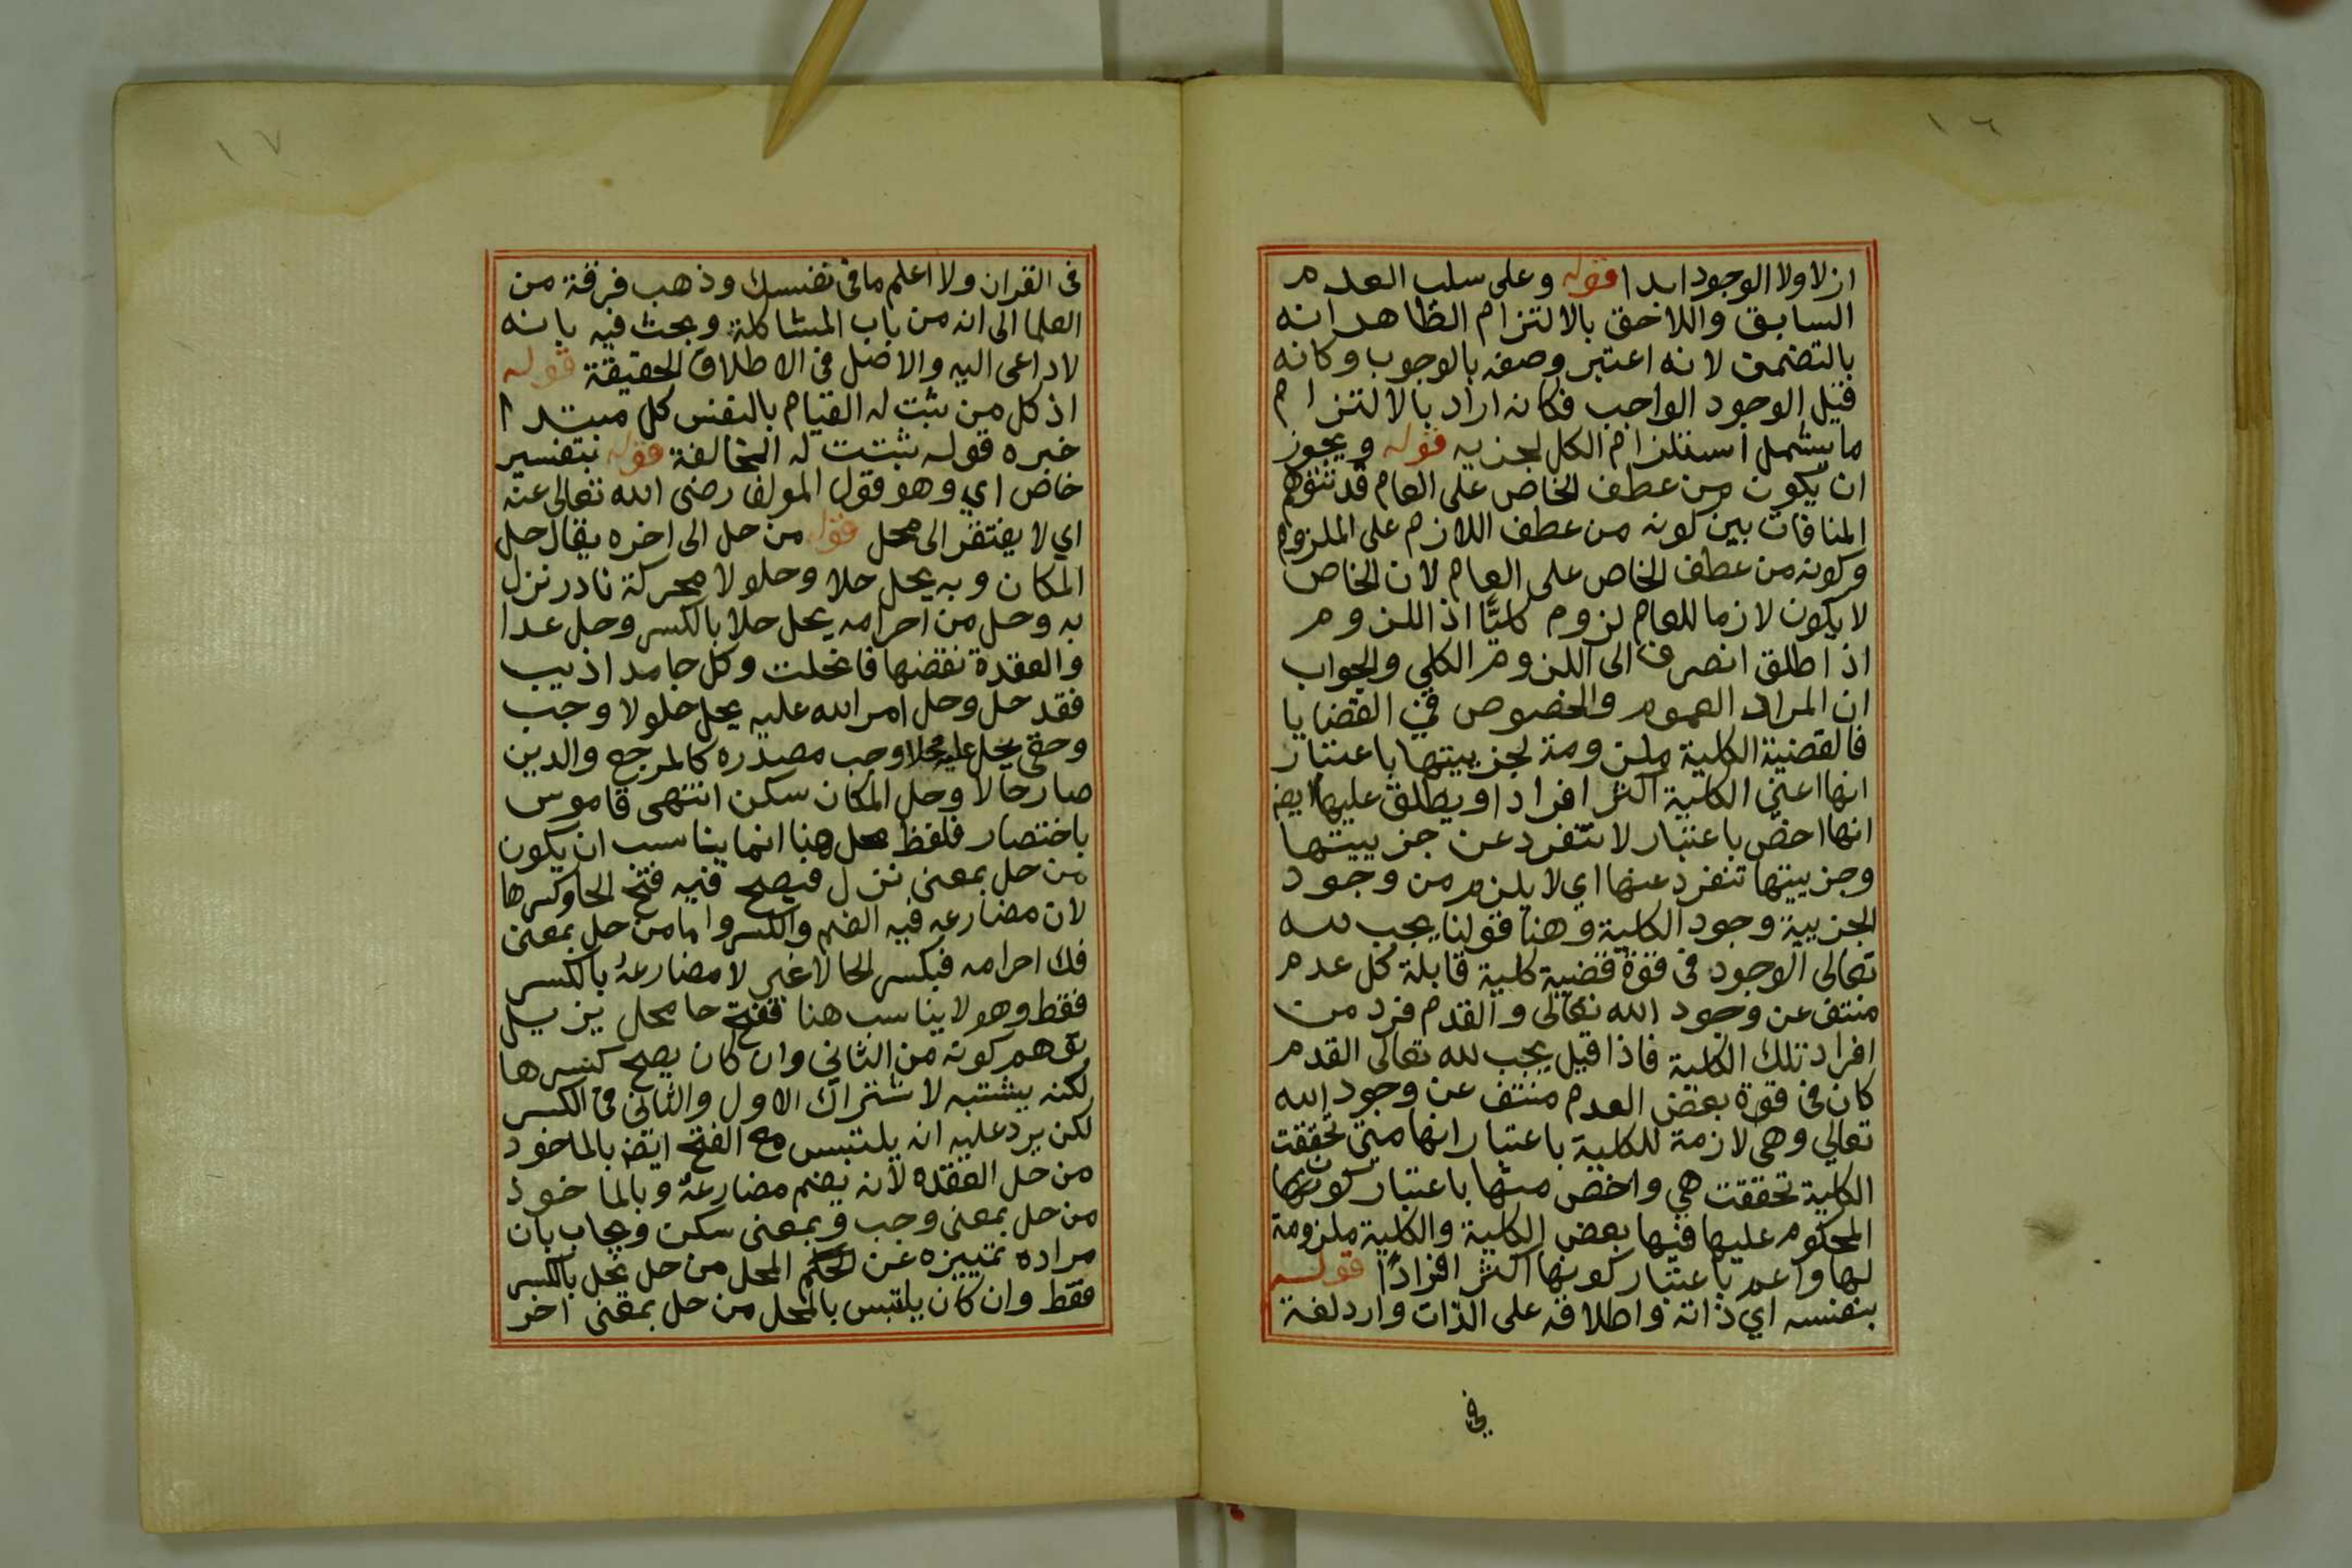 ١٦
ازلا ولا الوجود ابدا قوله وعلى سلب العدم
السابق واللاحق بالالتزام الظاهر انه
بالتضمن لانه اعتبر وصفه بالوجوب وكانه
قيل الوجود الواجب فكانه اراد بالالتزام
ما يشمل استلزام الكل لجزيه قوله ويجوز
ان يكون من عطف الخاص على العام قد تتوهم
المنافات بين كونه من عطف اللازم على الملزوم
وكونه من عطف الخاص على العام لان الخاص
لا يكون لازما للعام لزوم كليًّا اذ اللزوم
اذ اطلق انصرف الى اللزوم الكلي والجواب
ان المراد العموم والخصوص في القضايا
فالقضية الكلية ملزومة لجزييتها باعتبار
انها اعني الكلية اكثر افرادا ويطلق عليها ايض
انها اخص باعتبار لا تنفرد عن جزييتها
وجزييتها تنفرد عنها اي لا يلزم من وجود
الجزيية وجود الكلية وهنا قولنا يجب لله
تعالى الوجود في قوة قضية كلية قايلة كل عدم
منتف عن وجود الله تعالى والقدم فرد من
افراد تلك الكلية فاذا قيل يجب لله تعالى القدم
كان في قوة بعض العدم منتف عن وجود الله
تعالي وهي لازمة للكلية باعتبار انها متى تحققت
الكلية تحققت هي واخص منها باعتبار كون
المحكوم عليها فيها بعض الكلية والكلية ملزومة
لها واعم باعتبار كونها اكثر افرادًا قوله
بنفسه اي ذاته واطلاقه على الذات وارد لغة
في
١٧
في القران ولا اعلم ما في نفسك وذهب فرقة من
العلما الى انه من باب المشاكلة وبحث فيه بانه
لا داعى اليه والاصل في الاطلاق الحقيقة قوله
اذ كل من ثبت له القيام بالنفس كل مبتدا
خبره قوله ثبتت له المخالفة قوله بتفسير
خاص اي وهو قول المولف رضى الله تعالى عنه
اي لا يفتقر الى محل قوله من حل الى اخره يقال حل
المكان وبه يحل حلا وحلولا محركة نادر نزل
به وحل من احرامه يحل حلا بالكسر وحل عدا
والعقدة نقضها فانحلت وكل جامد اذيب
فقد حل وحل امر الله عليه يحل حلولا وجب
وحقى يحل عليه محلا وجب مصدره كالمرجع والدين
صار حالا وحل المكان سكن انتهى قاموس
باختصار فلفظ محل هنا انما يناسب ان يكون
من حل بمعنى نزل فيصح فيه فتح الحا وكسرها
لان مضارعه فيه الضم والكسر واما من حل بمعنى
فك احرامه فبكسر الحا لا غير لا مضارعهُ بالكسر
فقط وهو لا يناسب هنا ففتح حا محل يزيل
توهم كونه من الثاني وان كان يصح كسرها
لكنه يشتبه لاشتراك الاول والثاني في الكسر
لكن يرد عليه انه يلتبس مع الفتح ايض بالماخوذ
من حل العقده لانه بضم مضارعهُ وبالماخوذ
من حل بمعنى وجب وبمعنى سكن ويجاب بان
مراده تمييزه عن المحل من حل يحل بالكسر
فقط وان كان يلتبس بالمحل من حل بمعنى اخر